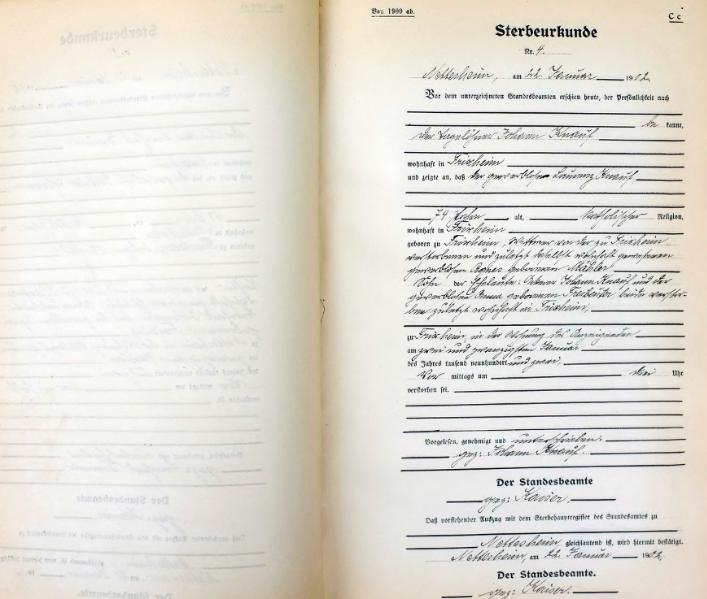 Von 1900 ab.
C c
Sterbeurkunde
Nr. 4
Nettersheim, am 22. Januar 1902.
Vor dem unterzeichneten Standesbeamten erschien heute, der Persönlichkeit nach
be kannt,
der Tagelöhner Johann Knauf
wohnhaft in Frixheim
und zeigte an, daß der gewerblose Lorenz Knauf
74 Jahre alt, katholischer Religion,
wohnhaft in Frixheim
geboren zu Frixheim, Wittwer von der zu Frixheim
verstorbenen und zuletzt daselbst wohnhaft gewesenen
gewerblosen Agnes geborenen
Sohn der Eheleute: Ackerer Johann Knauf und der
gewerblosen Anna geborenen beide verstor-
ben zuletzt wohnhaft in Frixheim,
zu Frixheim, in der Wohnung des Anzeigenden
am zwei und zwanzigsten Januar
des Jahres tausend neunhundert und zwei,
Vor mittags um drei Uhr
verstorben sei.
Vorgelesen, genehmigt und unterschrieben.
gez: Johann Knauf.
Der Standesbeamte
gez: Kaiser.
Daß vorstehender Auszug mit dem Sterbehauptregister des Standesamtes zu
Nettersheim gleichlautend ist, wird hiermit bestätigt.
Nettersheim, am 22. Januar 1902.
Der Standesbeamte.
gez: Kaiser.